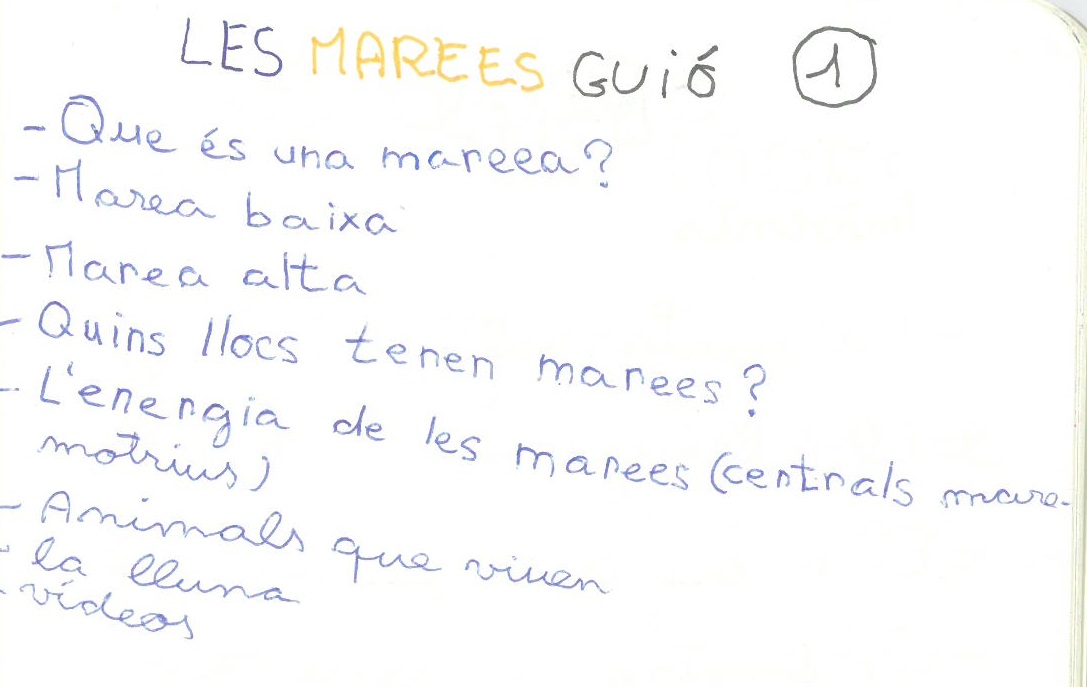 LES MAREES GUIÓ 1
- Que és una mareea?
- Marea baixa
- Marea alta
- Quins llocs tenen marees?
- L'energia de les marees (centrals mare-
motrius)
- Animals que viuen
- la lluna
- vídeos